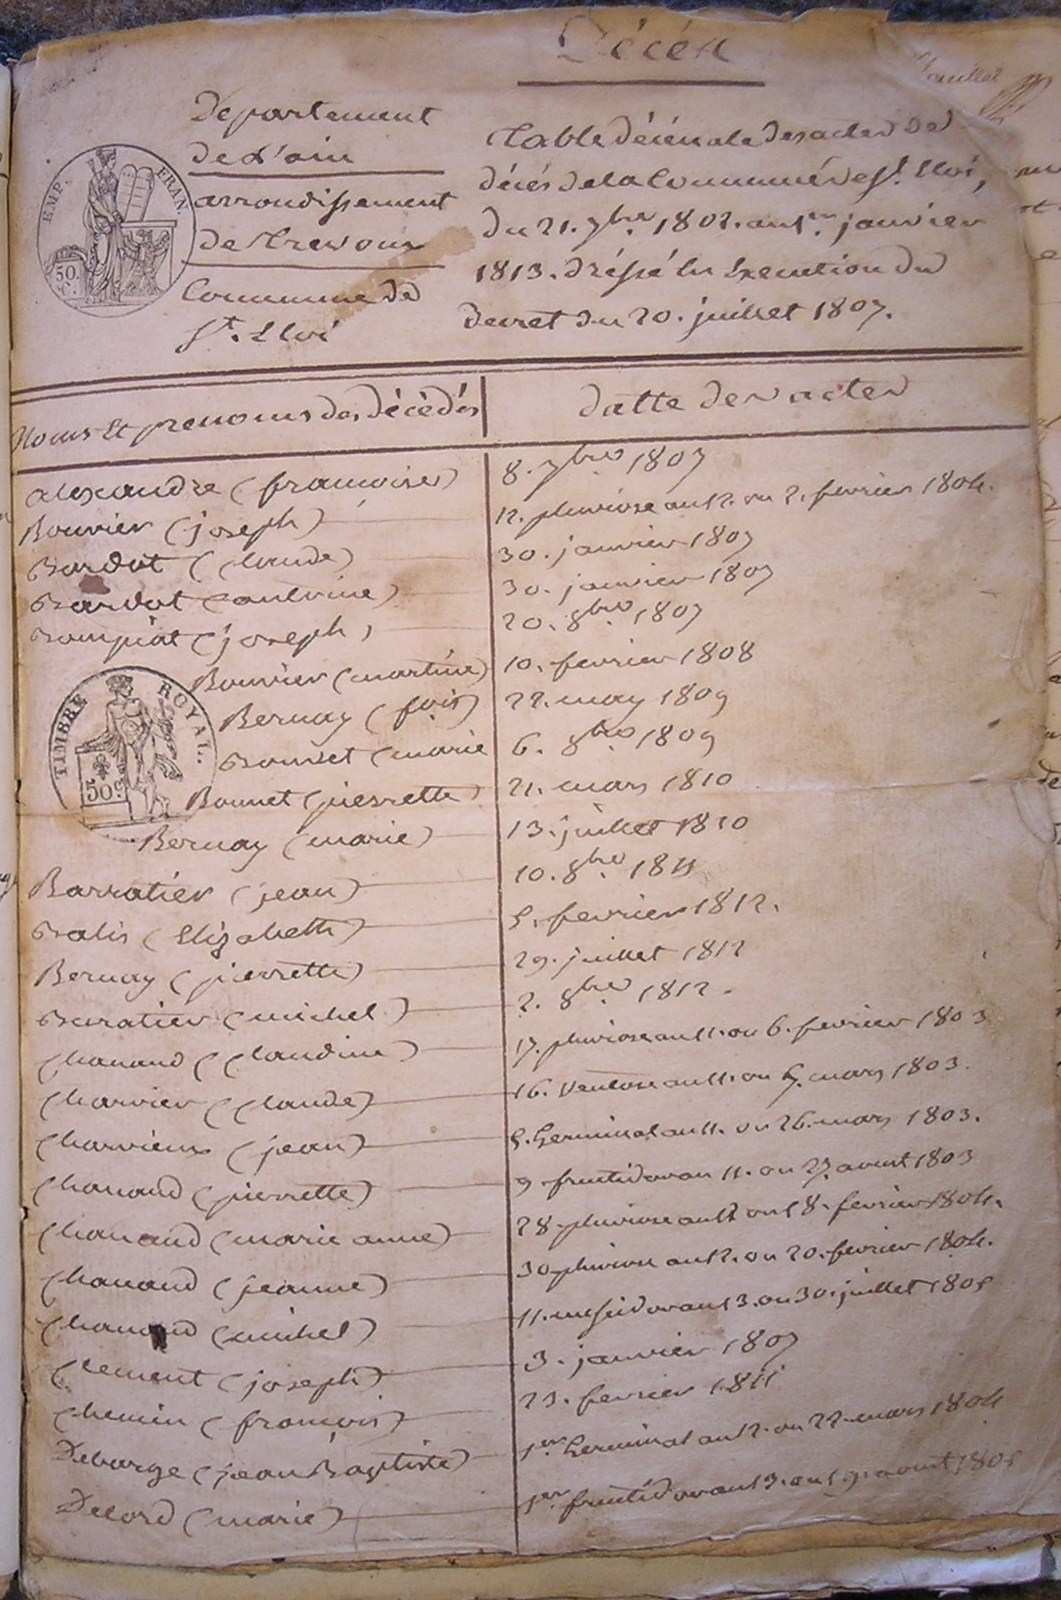 Décés
feuillet
Departement
de L'ain
arrondissement
de Trevoux
Commune de
St. Eloi
EMP. FRAN.
50.
C.
Table décénale des actes de
décés de la Commune de St. Eloi,
du 21. 7bre 1802. au 1er janvier
1813. dréssé en Execution du
decret du 20. juillet 1807.
Noms Et prenoms des décédés
datte des actes
alexandre (francoise) 8. 7bre 1807
Bouvier (joseph) 12. pluviose an 12. ou 2. fevrier 1804.
Bardot (Claude) 30. janvier 1807
Bardot (antoine) 30. janvier 1807
Bompiat (joseph) 20. 8bre 1807
Bouvier (martine) 10. fevrier 1808
Bernay (fois) 22. may 1809
Bonnet (marie 6. 8bre 1809
Bonnet (pierrette) 21. mars 1810
Bernay (marie) 13. juillet 1810
Barratier (jean) 10. 8bre 1811
Balis (Elizabeth) 5. fevrier 1812.
Bernay (pierrette) 29. juillet 1812
Baratier (michel) 2. 8bre 1812.
Chanand (Claudine) 17. pluviose an 11. ou 6. fevrier 1803
Charvier (Claude) 16. Ventose an 11. ou 7. mars 1803.
Charvieux (jean) 5. Germinal an 11. ou 26. mars 1803.
Chanand (pierrette) 9 fructidor an 11. ou 27 aoust 1803
Chanand (marie anne) 28. pluviose an 12 ou 18. fevrier 1804.
Chanand (jeanne) 30 pluviose an 12. ou 20. fevrier 1804.
Chanand (michel) 11. messidor an 13. ou 30. juillet 1805
Clement (joseph) 3. janvier 1807
Chemin (francois) 23. fevrier 1811
Debarge (jean Baptiste) 1er Germinal an 12. ou 22. mars 1804
Delord (marie) 1er fructidor an 13. ou 19. aoust 1805
TIMBRE ROYAL.
50 c.